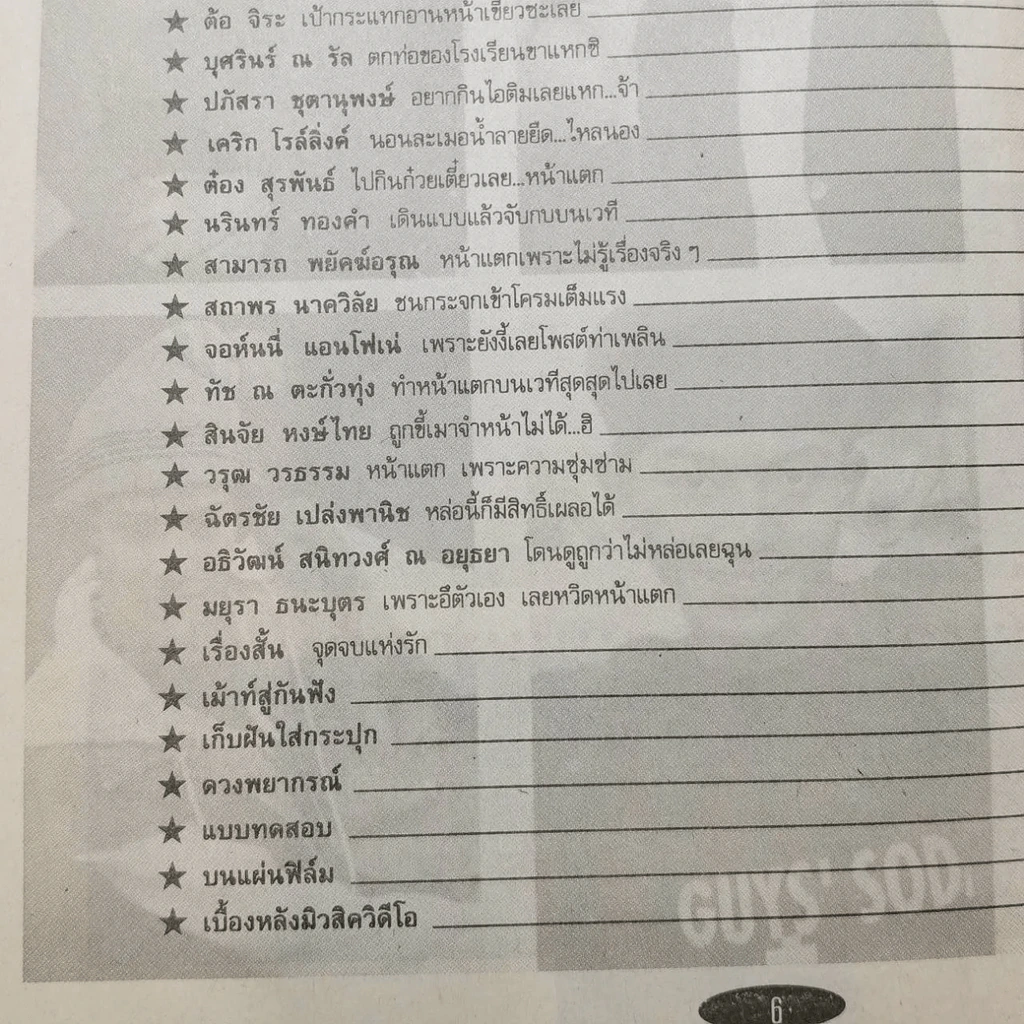 ★ ต้อ จิระ เป้ากระแทกอานหน้าเขียวซะเลย
★ บุศรินทร์ ณ รัล ตกท่อของโรงเรียนขาแหกซิ
★ ปภัสรา ชุตานุพงษ์ อยากกินไอติมเลยแหก...จ้า
★ เคริก โรล์ลิ่งค์ นอนละเมอน้ำลายยืด...ไหลนอง
★ ต๋อง สุรพันธ์ ไปกินก๋วยเตี๋ยวเลย...หน้าแตก
★ นรินทร์ ทองคำ เดินแบบแล้วจับกบบนเวที
★ สามารถ พยัคฆ์อรุณ หน้าแตกเพราะไม่รู้เรื่องจริง ๆ
★ สถาพร นาควิลัย ชนกระจกเข้าโครมเต็มแรง
★ จอห์นนี่ แอนโฟเน่ เพราะยังงี้เลยโพสต์ท่าเพลิน
★ ทัช ณ ตะกั่วทุ่ง ทำหน้าแตกบนเวทีสุดสุดไปเลย
★ สินจัย หงษ์ไทย ถูกขี้เมาจำหน้าไม่ได้...ฮิ
★ วรุฒ วรธรรม หน้าแตก เพราะความซุ่มซ่าม
★ ฉัตรชัย เปล่งพานิช หล่อนี้ก็มีสิทธิ์เผลอได้
★ อธิวัฒน์ สนิทวงศ์ ณ อยุธยา โดนดูถูกว่าไม่หล่อเลยฉุน
★ มยุรา ธนะบุตร เพราะอึตัวเอง เลยหวิดหน้าแตก
★ เรื่องสั้น จุดจบแห่งรัก
★ เม้าท์สู่กันฟัง
★ เก็บฝันใส่กระปุก
★ ดวงพยากรณ์
★ แบบทดสอบ
★ บนแผ่นฟิล์ม
★ เบื้องหลังมิวสิควิดีโอ
GUYS' SOD
6